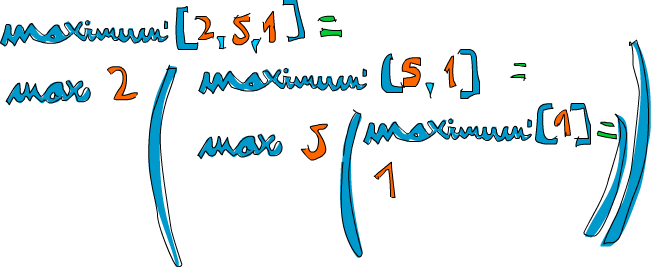 maximum' [2,5,1] =
max 2 ( maximum' [5,1] =
max 5 ( maximum' [1] =
1 ) )